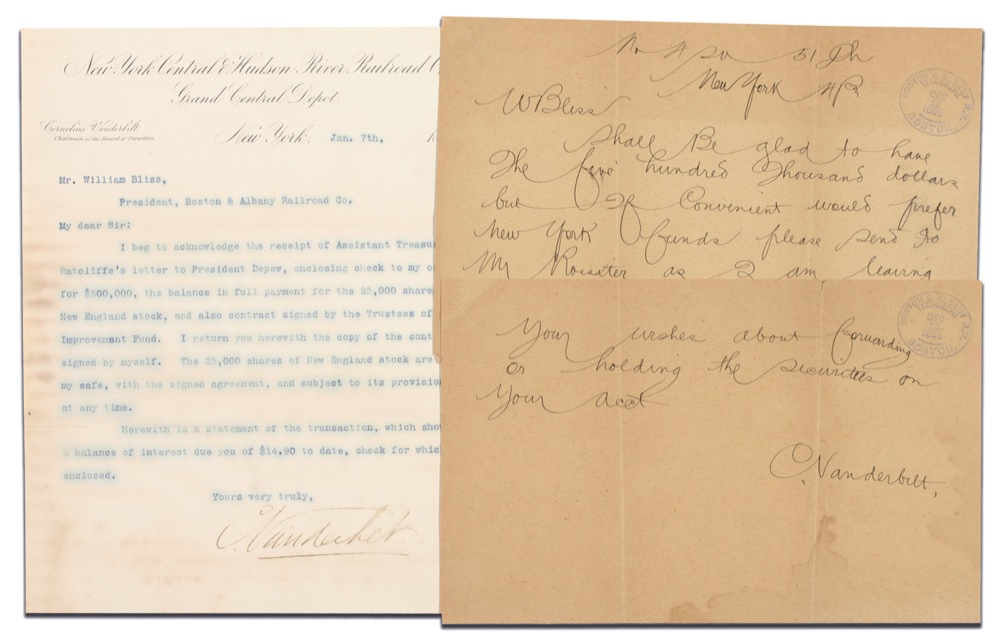 New York Central & Hudson River Railroad
Grand Central Depot.
Cornelius Vanderbilt,
Chairman of the Board of Directors.
New York, Jan. 7th,
Mr. William Bliss,
President, Boston & Albany Railroad Co.
My dear Sir:
I beg to acknowledge the receipt of Assistant Treasu
Ratcliffe's letter to President Depew, enclosing check to my o
for $500,000, the balance in full payment for the 25,000 share
New England stock, and also contract signed by the Trustees of
Improvement Fund. I return you herewith the copy of the cont
signed by myself. The 25,000 shares of New England stock are
my safe, with the signed agreement, and subject to its provisio
at any time.
Herewith is a statement of the transaction, which sho
a balance of interest due you of $14.90 to date, check for whic
enclosed.
Yours very truly,
C. Vanderbilt
51
New York
W Bliss
Shall Be glad to have
The five hundred Thousand dollars
but If Convenient would prefer
New York funds please send to
Mr Rossiter as I am leaving
Your wishes about forwarding
or holding the securities on
Your acct
C. Vanderbilt.